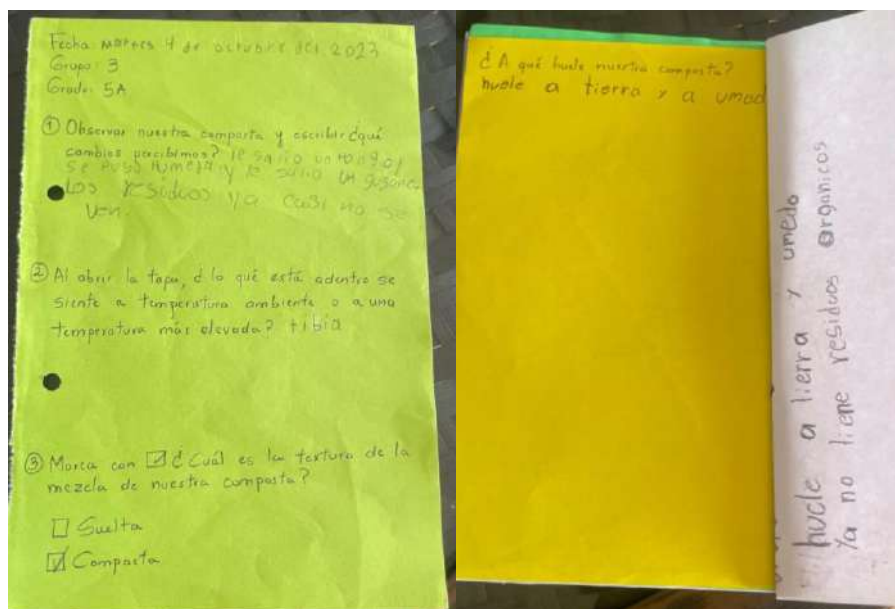 Fecha: martes 4 de octubre del 2023
Grupo: 3
Grado: 5A
① Observar nuestra composta y escribir ¿qué
cambios percibimos? le salio un hongo y
se puso humeda y le salio un gusano
Los residuos ya casi no se
ven.
② Al abrir la tapa, ¿lo que está adentro se
siente a temperatura ambiente o a una
temperatura más elevada? tibia
③ Marca con ☑ ¿Cuál es la textura de la
mezcla de nuestra composta?
☐ Suelta
☑ Compacta
¿A qué huele nuestra composta?
huele a tierra y a umed
huele a tierra y umedo
Ya no tiene residuos organicos